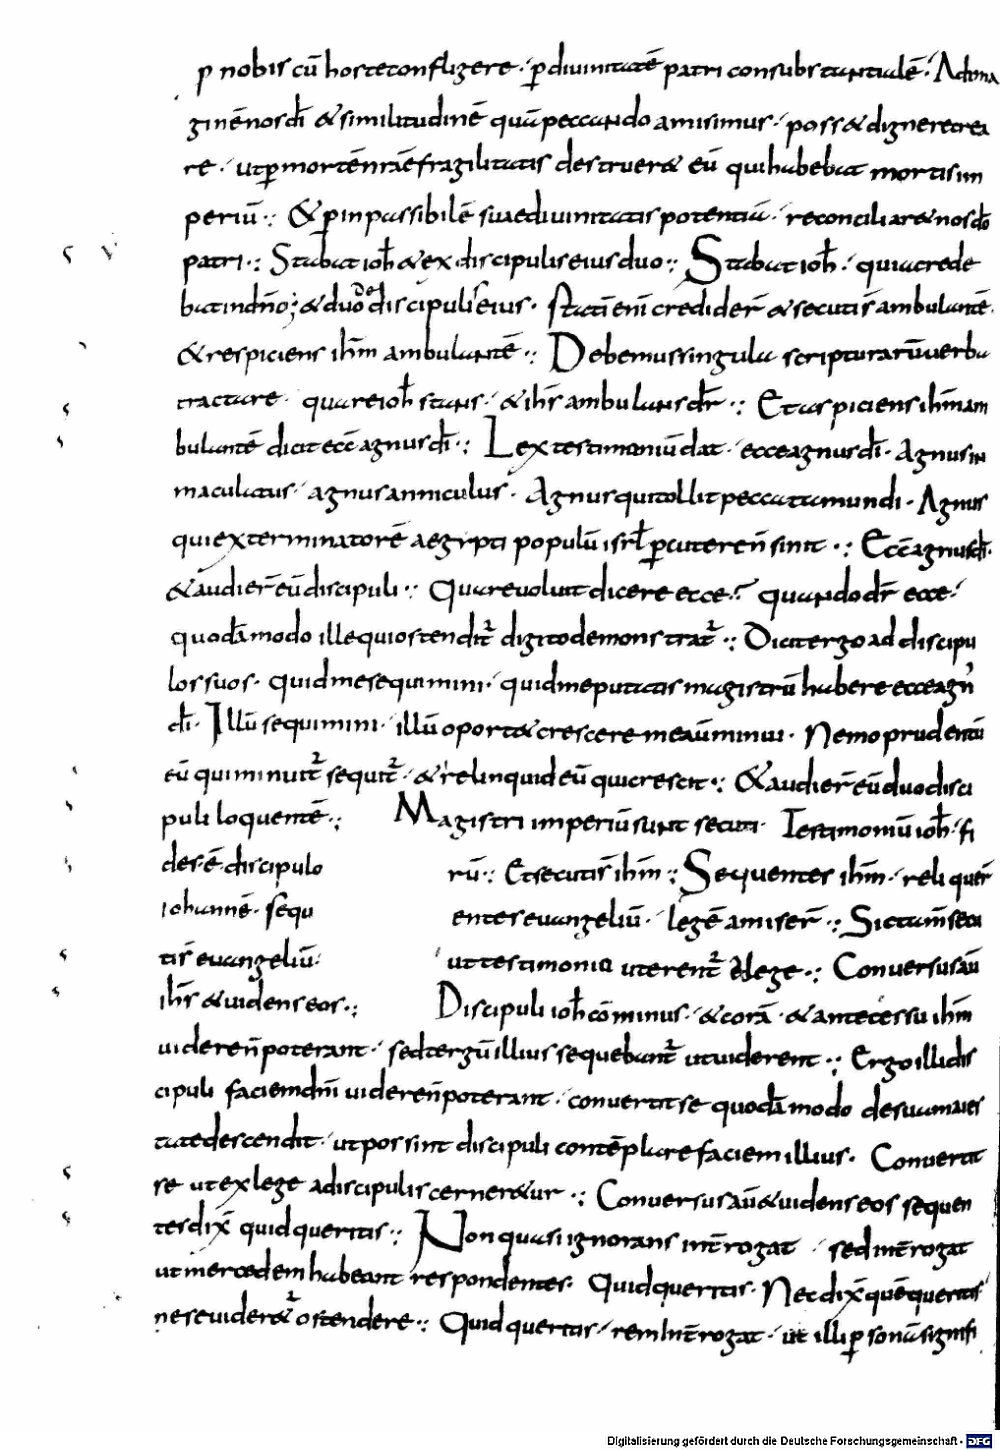 p nobis cū hoste confligere · p diuinitatē patri consubstantialē · Ad ima
ginē nos dī & similitudinē quā peccando amisimus · poss& dignere crea
re · ut p mortē nr̄aē fragilitatis destruer& eū qui habebat mortis im
periū ·: & p inpassibilē suae diuinitatis potentiā · reconciliar& nos dō
patri ·: Stabat ioh̄ & ex discipulis eius duo ·: Stabat ioh̄ · quia crede
bat in dn̄o ; & duo de discipulis eius · stati enī crediderт̄ & secuti s̄ ambulantē ·
& respiciens ih̄m ambulantē ·: Debemus singula scripturarū uerba
tractare · quare ioh̄ stans · & ih̄s ambulans dr̄ ·: Et aspiciens ih̄m am
bulantē dicit ecc̄ agnus dī ·: Lex testimoniū dat · ecce agnus dī · Agnus in
maculatus · agnus anniculus · Agnus qui tollit peccata mundi · Agnus
qui exterminatorē aegypti populū isrl̄ percuteren̄ sinit ·: Ecc̄ agnus dī ·
& audier̄ eū discipuli ·: Quare uoluit dicere ecce ·? quando dr̄ ecce ·
quodā modo ille qui ostendit᷑ digito demonstrat᷑ ·: Dicit ergo ad discipu
los suos · quid me sequimini · quid me putatis magistrū habere ecce agn̄
dī · Illū sequimini · illū oport& crescere me aū minui · Nemo prudentū
eū qui minuit᷑ sequit᷑ · & relinquid eū qui crescit ·: & audier̄ eū duo disci
puli loquentē ·: Magistri imperiū sunt secuti · Testimoniū ioh̄ · fi
des · ē discipulo rū ·: Et secuti s̄ ih̄m ·: Sequentes ih̄m · reliquer̄
iohannē · sequ entes euangeliū · legē amiser̄ ·: Sic tam̄ secu
ti s̄ euangeliū · ut testimonia uterent᷑ de lege ·: Conuersus aū
ih̄s & uidens eos ·: Discipuli ioh̄ cōminus · & corā · & antecessu ih̄m
uideren̄ poterant · sed tergū illius sequebant᷑ ut uiderent ·: Ergo illi dis
cipuli faciem dn̄i uideren̄ poterant · conuertit se quodā modo de sua maies
tate descendit · ut possint discipuli contēplare faciem illius · Conuertit
se ut ex lege a discipulis cerner&ur ·: Conuersus aū & uidens eos sequen
tes dix̄ quid queritis ·: Non quasi ignorans int̄rogat · sed int̄rogat
ut mercedem habeant respondentes · Quid queritis · Nec dix̄ quē queritis
ne se uider&᷑ ostendere ·: Quid queritis · rem int̄rogat · ut illi p sonā signifi
Digitalisierung gefördert durch die Deutsche Forschungsgemeinschaft - DFG